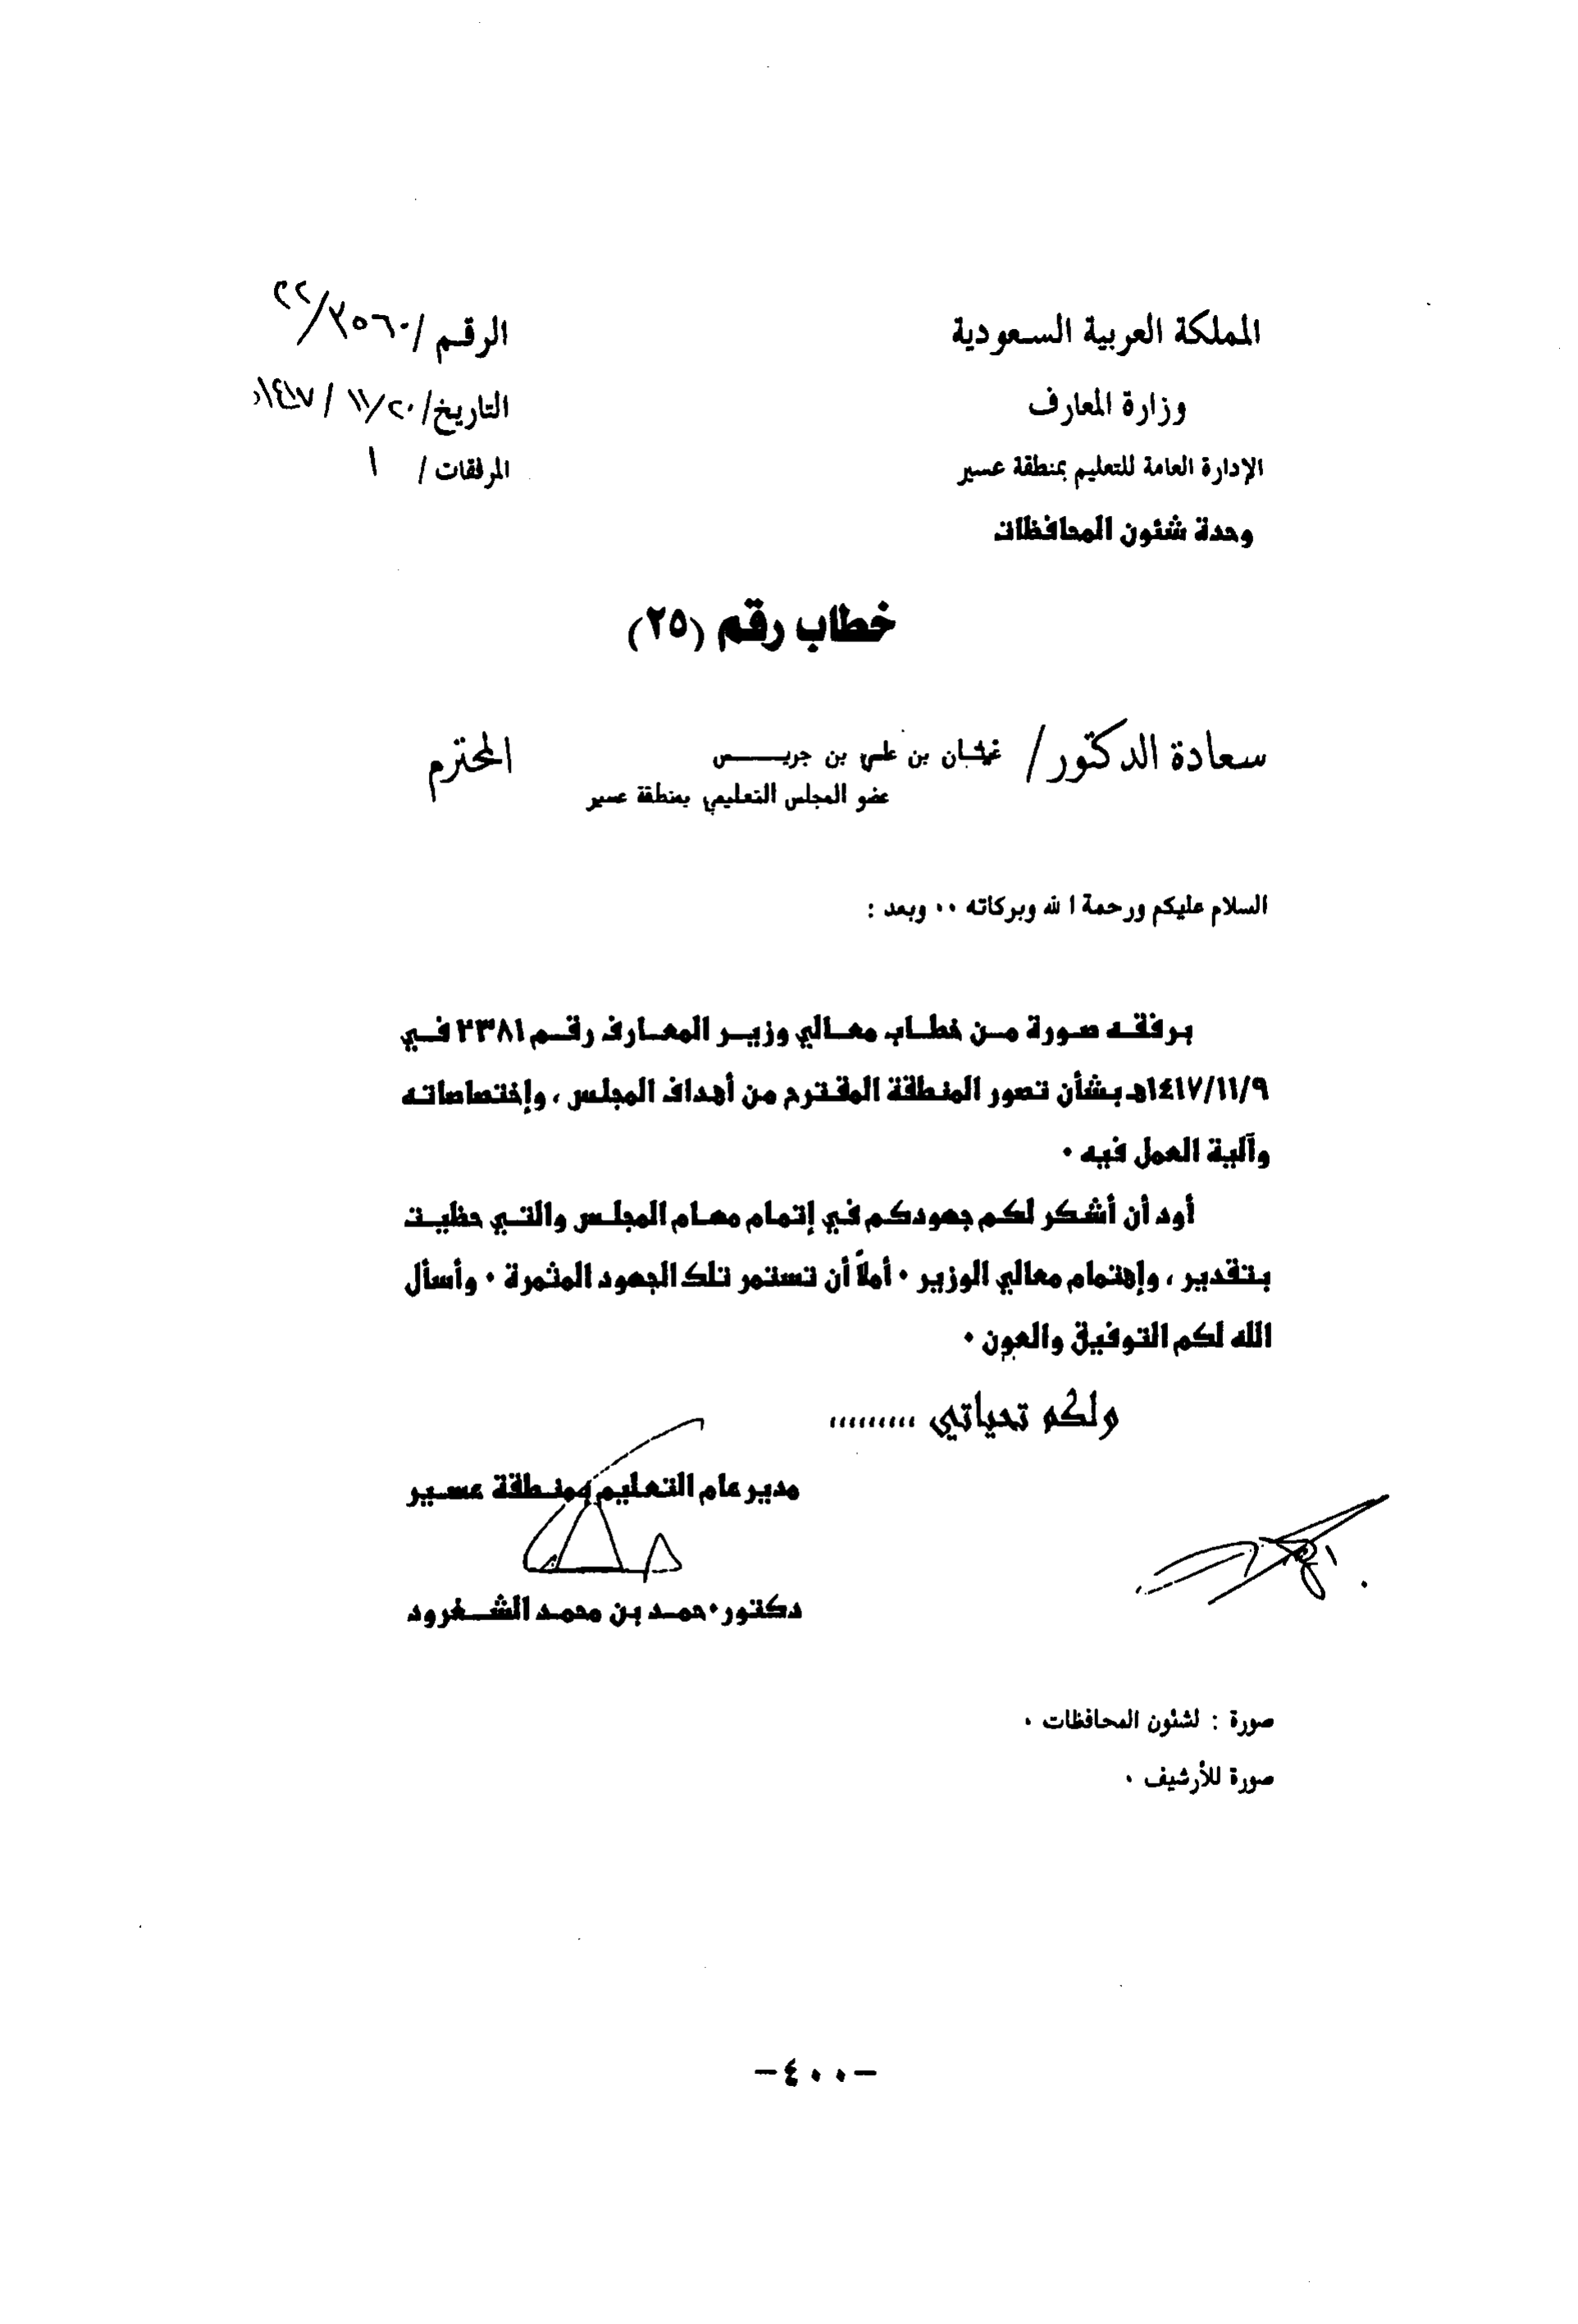 المملكة العربية السعودية
وزارة المعارف
الإدارة العامة للتعليم بمنطقة عسير
وحدة شئون المحافظات
الرقم / ٣٥٦٠/٢٢
التاريخ/ ٢٠/١١/١٤١٧
المرفقات / ١
خطاب رقم (٢٥)
سعادة الدكتور / غيثان بن علي بن جريـــس المحترم
عضو المجلس التعليمي بمنطقة عسير
السلام عليكم ورحمة الله وبركاته ٠٠ وبعد :
برفقـه صـورة مـن خطـاب معـالي وزيـر المعـارف رقـم ٢٣٨١ فـي
١٤١٧/١١/٩هـ بشأن تصور المنطقة المقترح من أهداف المجلس ، وإختصاصاتـه
وآلية العمل فيه ٠
أود أن أشكر لكم جهودكم في إتمام مهـام المجلـس والتـي حظيـت
بتقدير ، وإهتمام معالي الوزير ٠ أملاً أن تستمر تلك الجهود المثمرة ٠ وأسأل
الله لكم التوفيق والعون ٠
ولكم تحياتي ,,,,,,,,,
مدير عام التعليم بمنطقة عسير
دكتور ٠ حمـد بـن محمـد الشـغرود
صورة : لشئون المحافظات ٠
صورة للأرشيف ٠
-٤٠٠-